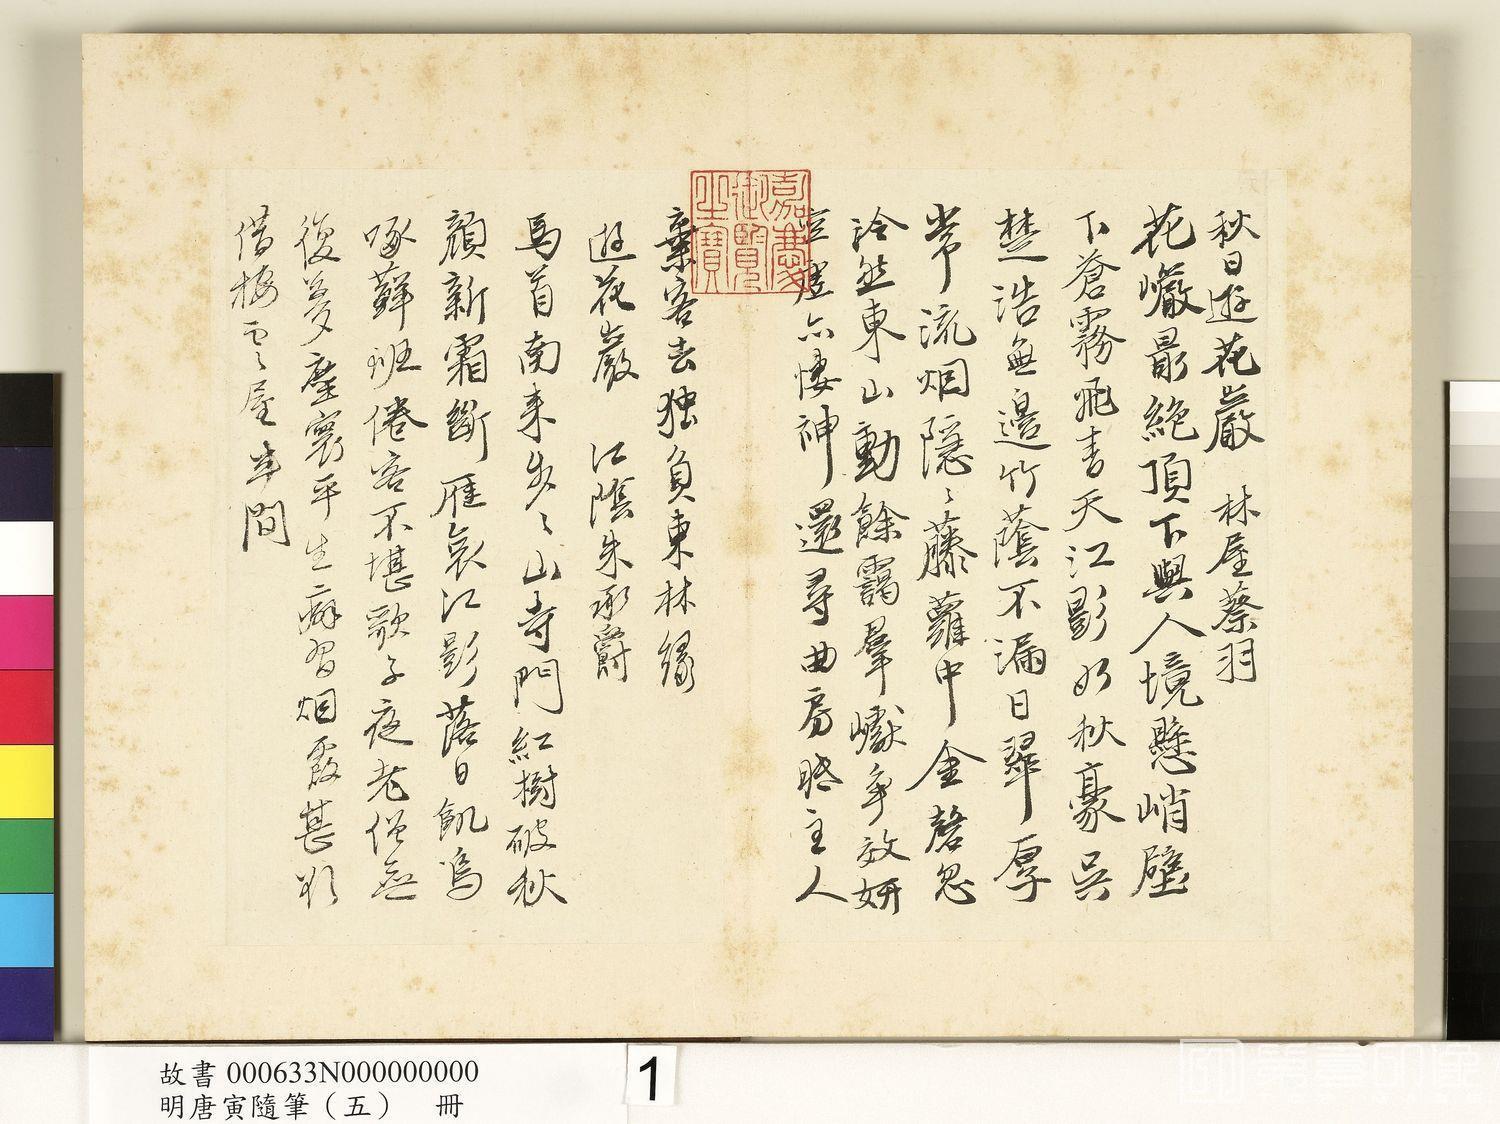 秋日遊花巖　林屋蔡羽
花巘最絶頂下與人境懸峭壁
下蒼霧飛書天江影如秋豪吳
楚浩無邊竹蔭不漏日翠厚
常流烟隱〻藤蘿中金磬忽
泠然東山動餘靄羣巘爭效妍
亦悽神還尋曲房眠主人
棄客去独負東林緣
遊花巖　江陰朱承爵
馬首南来步〻山寺門紅樹破秋
顔新霜斷雁哀江影落日飢烏
啄蘚班倦客不堪歌子夜老僧無
復夢塵寰平生癖習烟霞甚欲
借梅雲屋半間
嘉慶御覽之寶
故書 000633N000000000
明唐寅隨筆（五）　冊
1